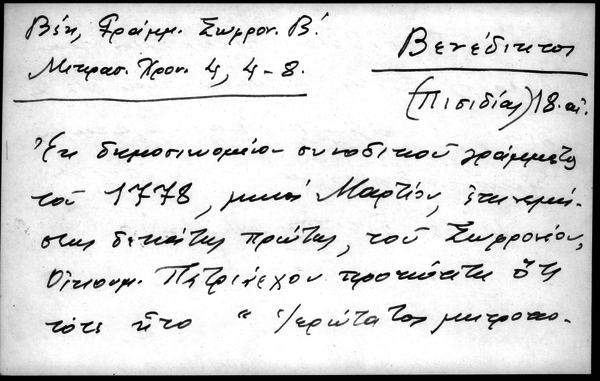 Βέη, Γράμμ. Σωφρον. Β΄.
Μικρασ. Χρον. 4, 4-8.
Βενέδικτος
(Πισιδίας) 18. αἰ.
Ἐκ δημοσιευομένου συνοδικοῦ γράμματος
τοῦ 1778, μηνὸς Μαρτίου, ἐπινεμή-
σεως δεκάτης πρώτης, τοῦ Σωφρονίου,
Οἰκουμ. Πατριάρχου προκύπτει ὅτι
τότε ἦτο " ἱερώτατος μητροπο-